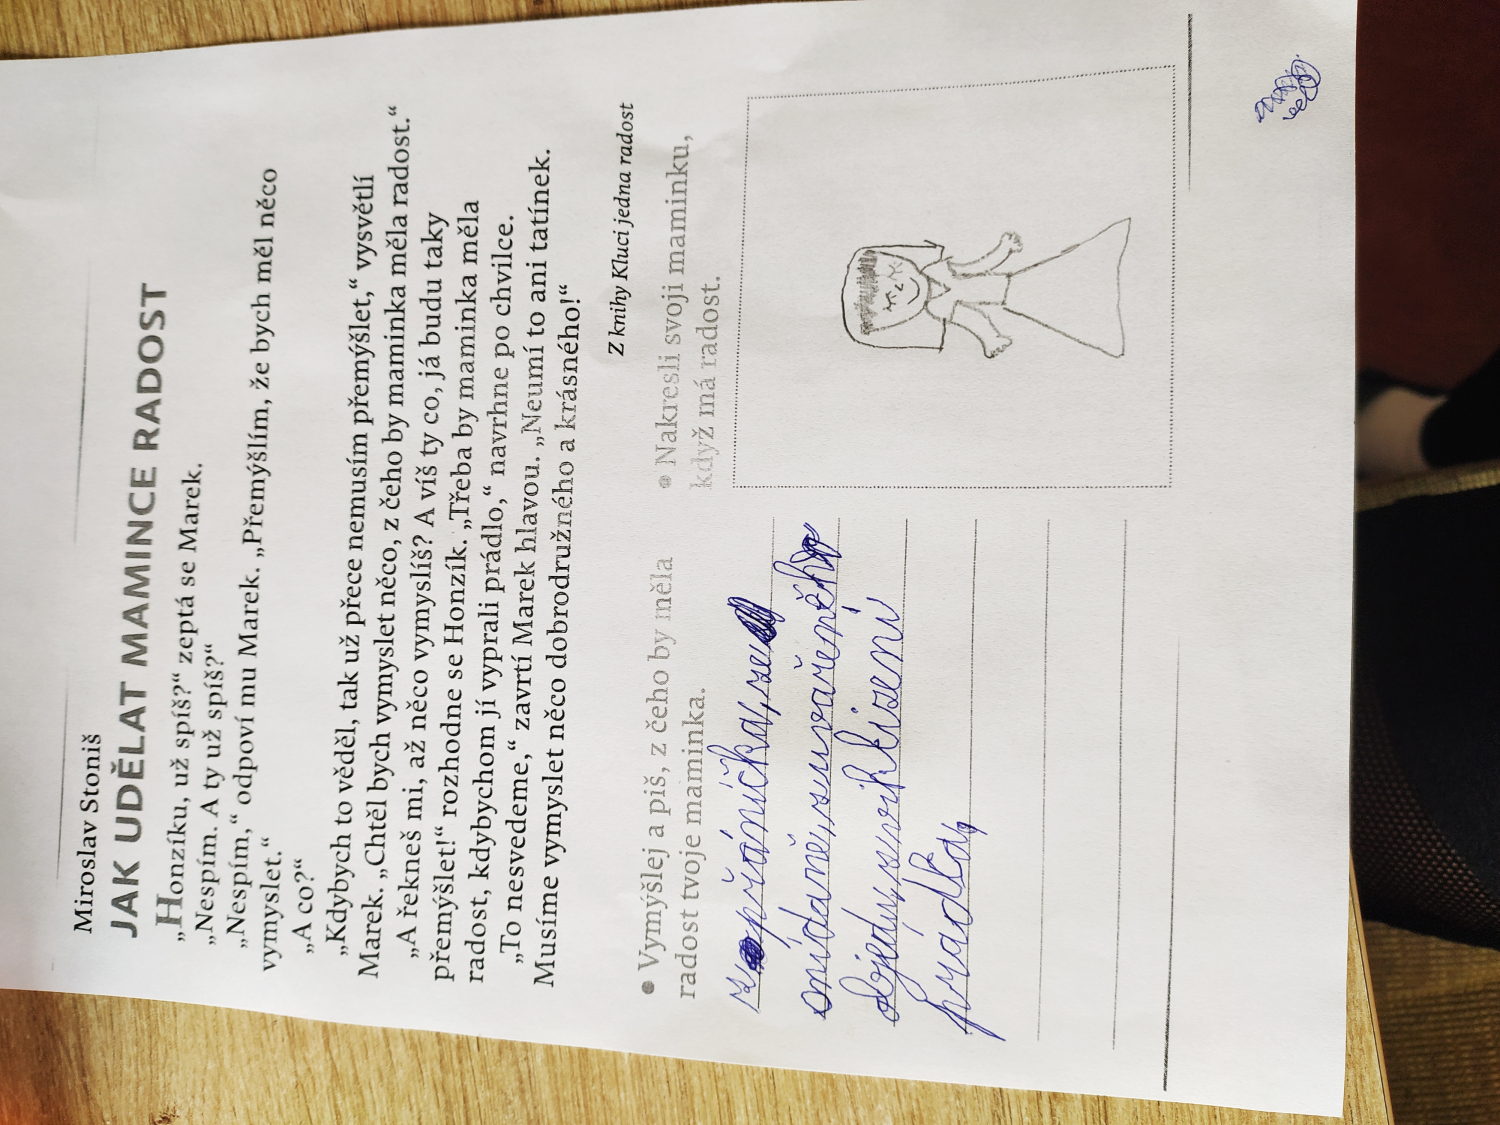 Miroslav Stoniš
JAK UDĚLAT MAMINCE RADOST
„Honzíku, už spíš?“ zeptá se Marek.
„Nespím. A ty už spíš?“
„Nespím,“ odpoví mu Marek. „Přemýšlím, že bych měl něco
vymyslet.“
„A co?“
„Kdybych to věděl, tak už přece nemusím přemýšlet,“ vysvětlí
Marek. „Chtěl bych vymyslet něco, z čeho by maminka měla radost.“
„A řekneš mi, až něco vymyslíš? A víš ty co, já budu taky
přemýšlet!“ rozhodne se Honzík. „Třeba by maminka měla
radost, kdybychom jí vyprali prádlo,“ navrhne po chvilce.
„To nesvedeme,“ zavrtí Marek hlavou. „Neumí to ani tatínek.
Musíme vymyslet něco dobrodružného a krásného!“
Z knihy Kluci jedna radost
• Vymýšlej a piš, z čeho by měla
radost tvoje maminka.
z přáníčka, ze
snídaně, z uvařeného
objedu, z viklizení
prádla,
• Nakresli svoji maminku,
když má radost.